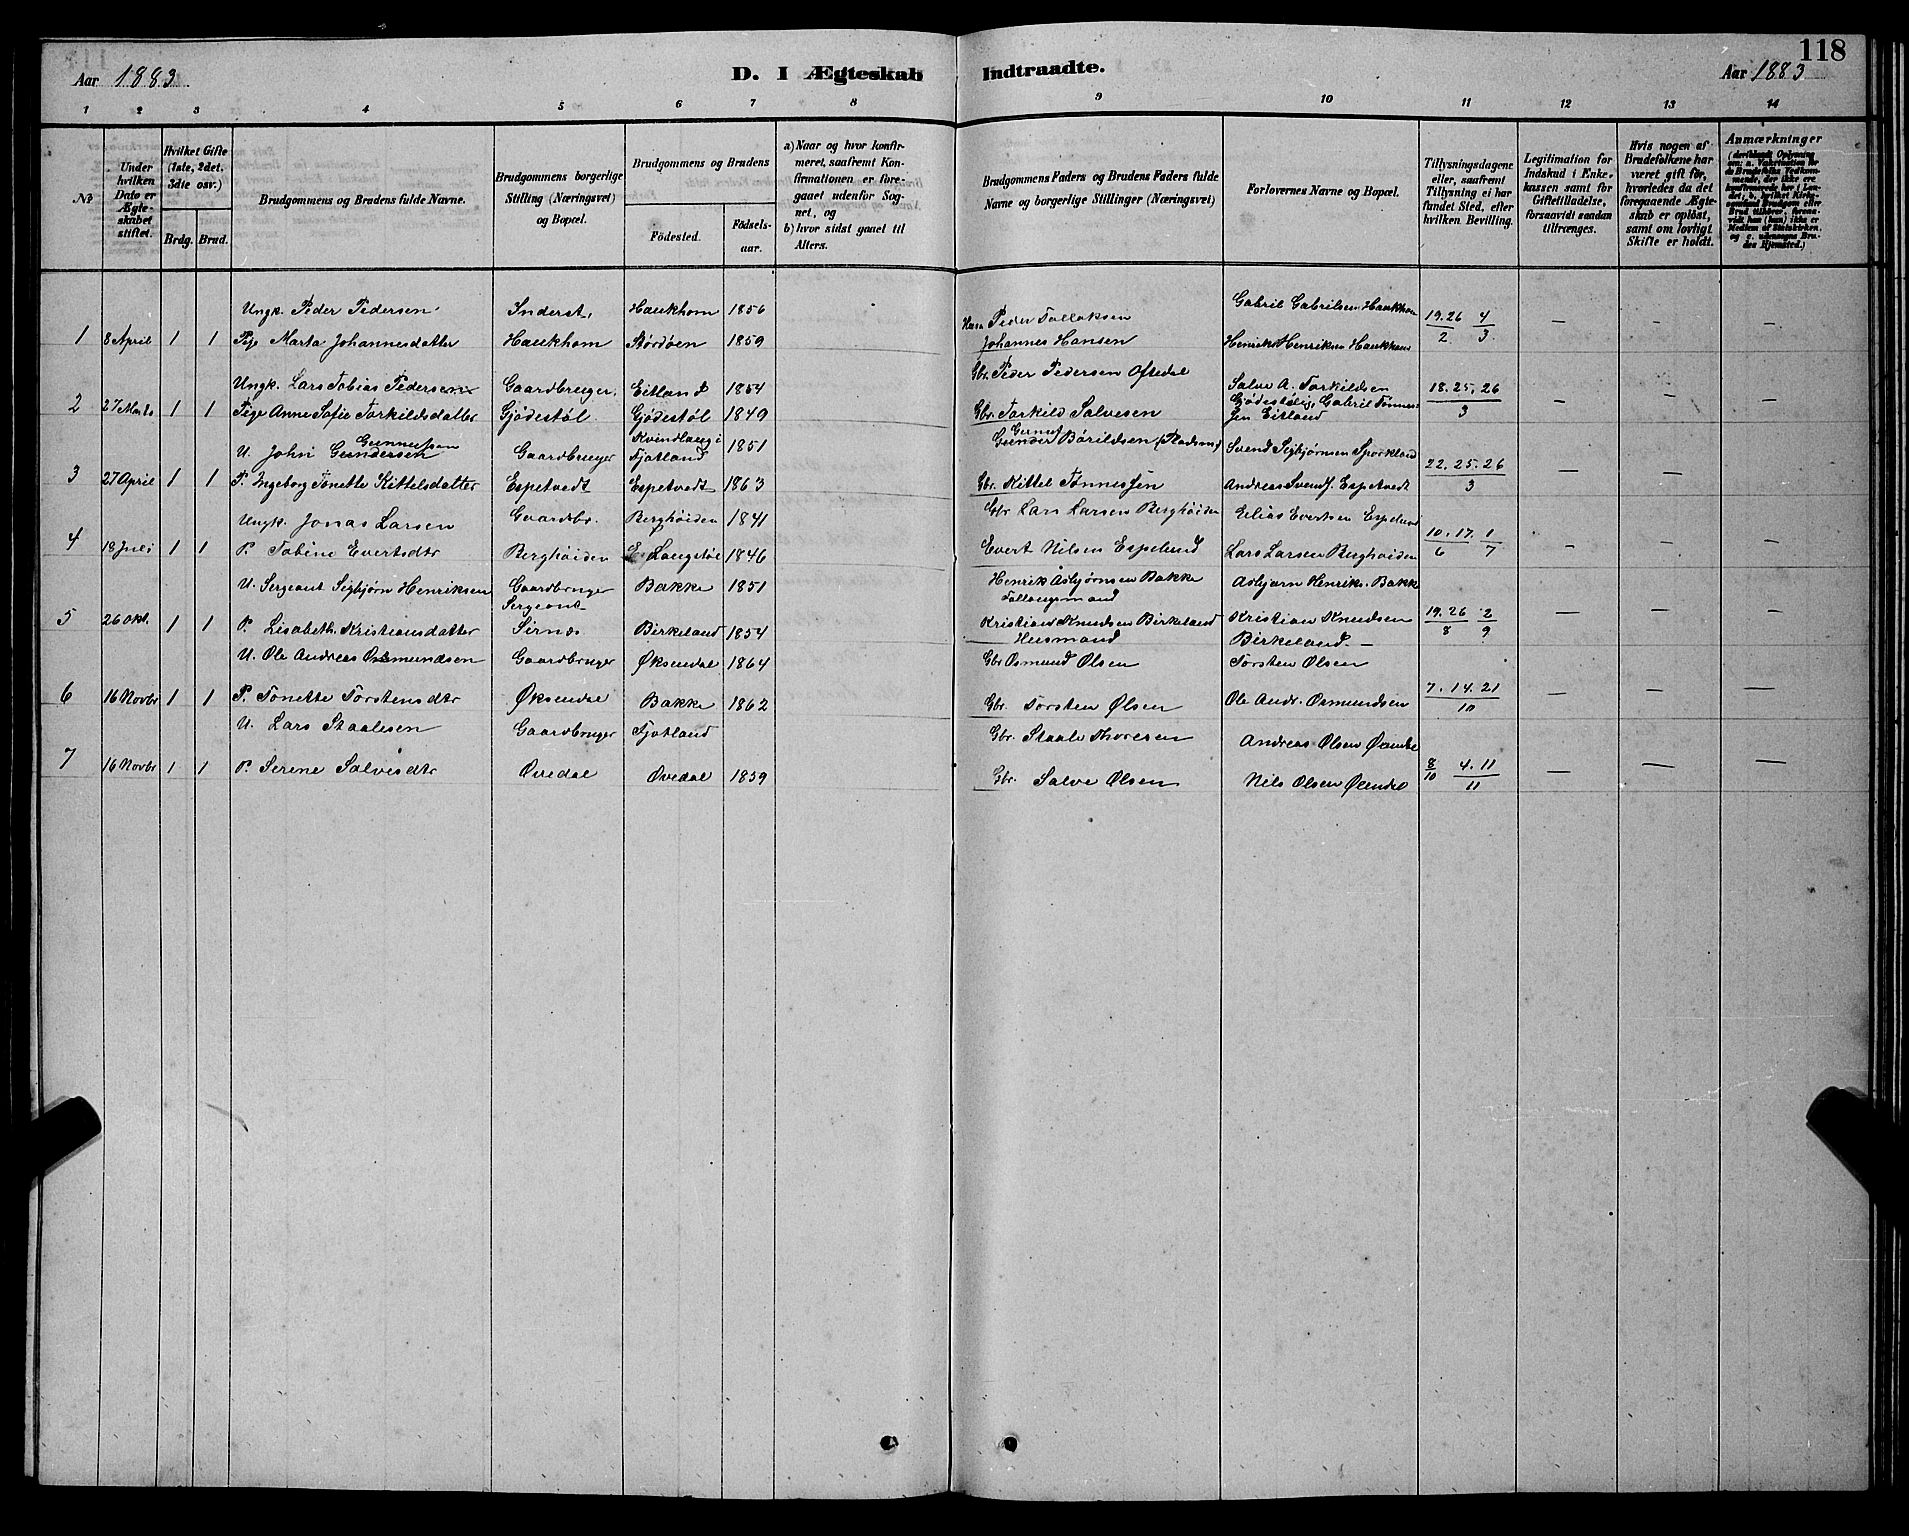 118
Aar 1883
D. I Ægteskab Indtraadte.
Aar 1883
1 2 3 4 5 6 7 8 9 10 11 12 13 14
№
Under hvilken Dato er Ægteskabet stiftet.
Hvilket Gifte (1ste, 2det, 3die osv.)
Brdg. Brud.
Brudgommens og Brudens fulde Navne.
Brudgommens borgerlige Stilling (Næringsvei) og Bopæl.
Brudgommens og Brudens
Födested.
Födselsaar.
a) Naar og hvor konfirmeret, saafremt Konfirmationen er foregaaet udenfor Sognet, og
b) hvor sidst gaaet til Alters.
Brudgommens Faders og Brudens Faders fulde Navne og borgerlige Stillinger (Næringsvei)
Forlovernes Navne og Bopæl.
Tillysningsdagene eller, saafremt Tillysning ei har fundet Sted, efter hvilken Bevilling.
Legitimation for Indskud i Enkekassen samt for Giftetilladelse, forsaavidt saadan tiltrænges.
Hvis nogen af Brudefolkene har været gift för, hvorledes da det foregaaende Ægteskab er oplöst, samt om lovligt Skifte er holdt.
Anmærkninger
Ungk. Peder Pedersen Inderst, Haukhom 1856 Peder Tollaksen Gabriel Gabrielsen Haukhom 19.26/2 4/3 — — —
1 8 April 1 1 Pige Marta Johannesdatter Haukhom Stordöen 1859 Johannes Hansen Henrik Henriksen Haukhom
Ungk. Lars Tobias Pedersen Gaardbruger, Eitland 1854 Gbr. Peder Pedersen Oftedal Salve A. Torkildsen 18.25.26/3 — — —
2 27 Marts 1 1 Pige Anne Sofie Torkildsdatter Gjödestöl Gjödestöl 1849 Gbr. Torkild Salvesen Gjödestöl, Gabriel Tönnessen Eitland
U. John Gundersen Gunnufsen Gaardbruger Kvindlaug i Fjotland 1851 Gunder Gunnuf Börildsen Svend Sigbjörnsen Sporkland 22.25.26/3 — — —
3 27 April 1 1 P. Ingeborg Tonette Kittelsdatter Espetvedt Espetvedt 1863 Gbr. Kittel Tönnessen Andreas Svends. Espetvedt
Ungk. Jonas Larsen Gaardbr. Berghöiden 1841 Gbr Lars Larsen Berghöiden Elias Evertsen Espelund 10.17./6 1/7 — — —
4 18 Juli 1 1 P. Tobine Evertsdtr Berghöiden Langstöl 1846 Evert Nilsen Espelund Lars Larsen Berghöiden
U. Sergeant Sigbjørn Henriksen Gaardbruger Sergeant Bakke 1851 Henrik Asbjørnsen Bakke Asbjørn Henriks. Bakke
5 26 Okt. 1 1 P. Lisabeth Kristiansdatter Sirnes Birkeland 1854 Kristian Knudsen Birkeland Husmand Kristian Knudsen Birkeland — 19.26/8 2/9 — — —
U. Ole Andreas Osmundsen Gaardbruger Øksendal 1864 Gbr Osmund Olsen Torsten Olsen
6 16 Novbr 1 1 P. Tonette Torstensdtr Øksendal Bakke 1862 Gbr. Torsten Olsen Ole Andr. Osmundsen 7.14.21/10 — — —
U. Lars Staalesen Gaardbruger Fjotland Gbr. Staale Thoresen Andreas Olsen
7 16 Novbr 1 1 P. Serine Salvesdtr Ovedal Ovedal 1859 Gbr. Salve Olsen Nils Olsen 8/10 4.11/11 — — —